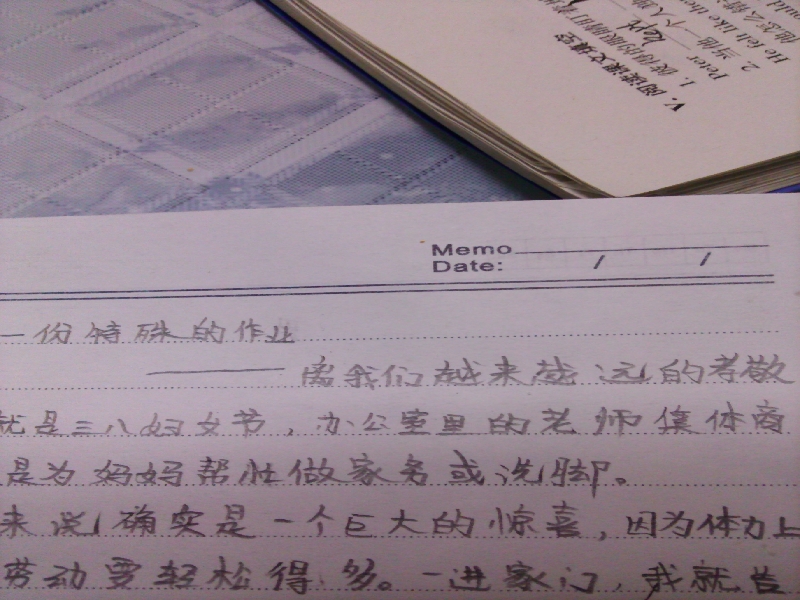 V. 阅读课文填空
1. 彼得的眼睛
Peter
2. 当他一个人
He felt like the
Memo
Date: / /
一份特殊的作业
——离我们越来越远的孝敬
就是三八妇女节，办公室里的老师集体商
是为妈妈帮忙做家务或洗脚。
来说确实是一个巨大的惊喜，因为体力上
劳动要轻松得多。一进家门，我就告